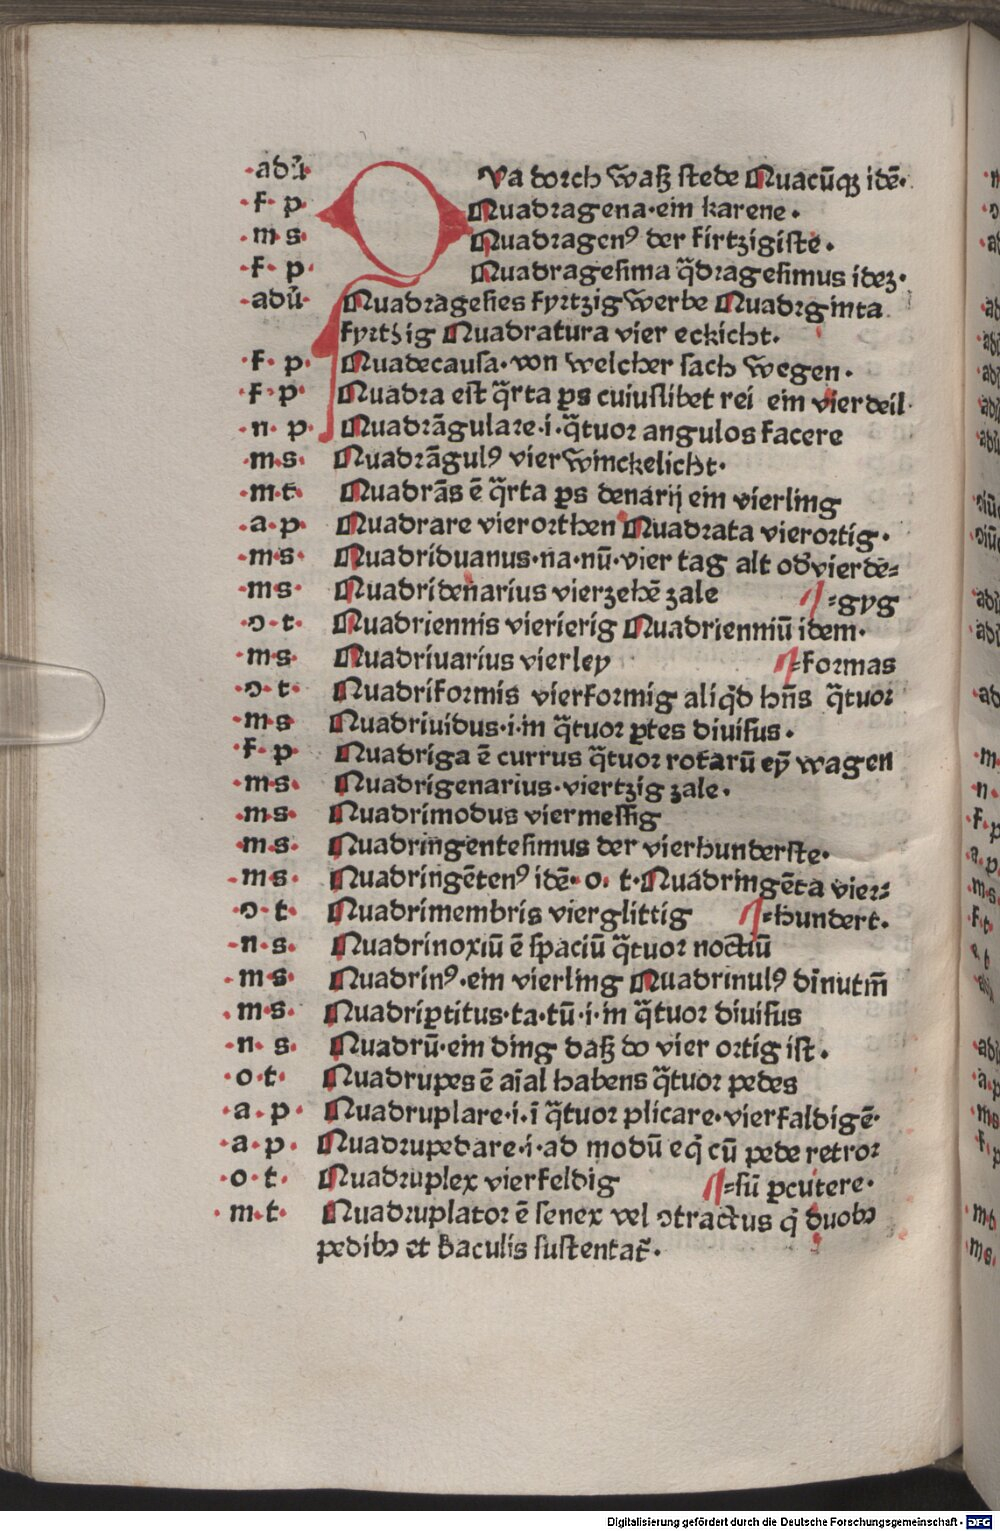 ·adū· QVa dorch waß stede Quacūqꝫ idē·
·f· p· Quadragena·ein karene·
·m·s· Quadragenꝰ der firtzigiste·
·f· p· Quadragesima q̄dragesimus ideꝫ·
·adū· Quadragesies fyrtzig werbe Quadrginta
fyrthig Quadratura vier eckicht·
·f· p· Quadecausa·von welcher sach wegen·
·f· p· Quadra est q̄rta ꝑs cuiuslibet rei ein vierdeil·
·n· p· Quadrāgulare·i·q̄tuor angulos facere
·m·s· Quadrāgulꝰ vierwinckelicht·
·m·t· Quadrās ē q̄rta ꝑs denarij ein vierling
·a·p· Quadrare vierorthen Quadrata vierortig·
·m·s· Quadriduanus·na·nū·vier tag alt od̛ vierdē=
·m·s· Quadridenarius vierzehē zale =gyg
·ↄ·t· Quadriennis vierierig Quadrienniū idem·
·m·s· Quadriuarius vierley =formas
·ↄ·t· Quadriformis vierformig aliq̄d hn̄s q̄tuor
·m·s Quadriuidus·i·in q̄tuor ꝑtes diuisus·
·f· p Quadriga ē currus q̄tuor rotarū eyn̄ wagen
·m·s· Quadrigenarius·viertzig zale·
·m·s· Quadrimodus viermessig
·m·s· Quadringentesimus der vierhunderste·
·m·s· Quadringētenꝰ idē· o· t·Quadringēta vier=
·ↄ·t· Quadrimembris vierglittig =hundert·
·n·s· Quadrinoxiū ē spaciū q̄tuor noctiū
·m·s· Quadrinꝰ·ein vierling Quadrinulꝰ dīnutm̄
·m·s· Quadriꝑtitus·ta·tū·i·in q̄tuor diuisus
·n· s· Quadrū·ein ding daß do vier ortig ist·
·o·t· Quadrupes ē aīal habens q̄tuor pedes
·a·p· Quadruplare·i·ī q̄tuor plicare·vierfaldigē·
·a·p· Quadrupedare·i·ad modū eq̄ cū pede retror
·o·t· Quadruplex vierfeldig =sū ꝑcutere·
·m·t· Quadruplator ē senex vel ↄtractus q̄ duobꝫ
pedibꝫ et baculis sustentat̄·
Digitalisierung gefördert durch die Deutsche Forschungsgemeinschaft · DFG